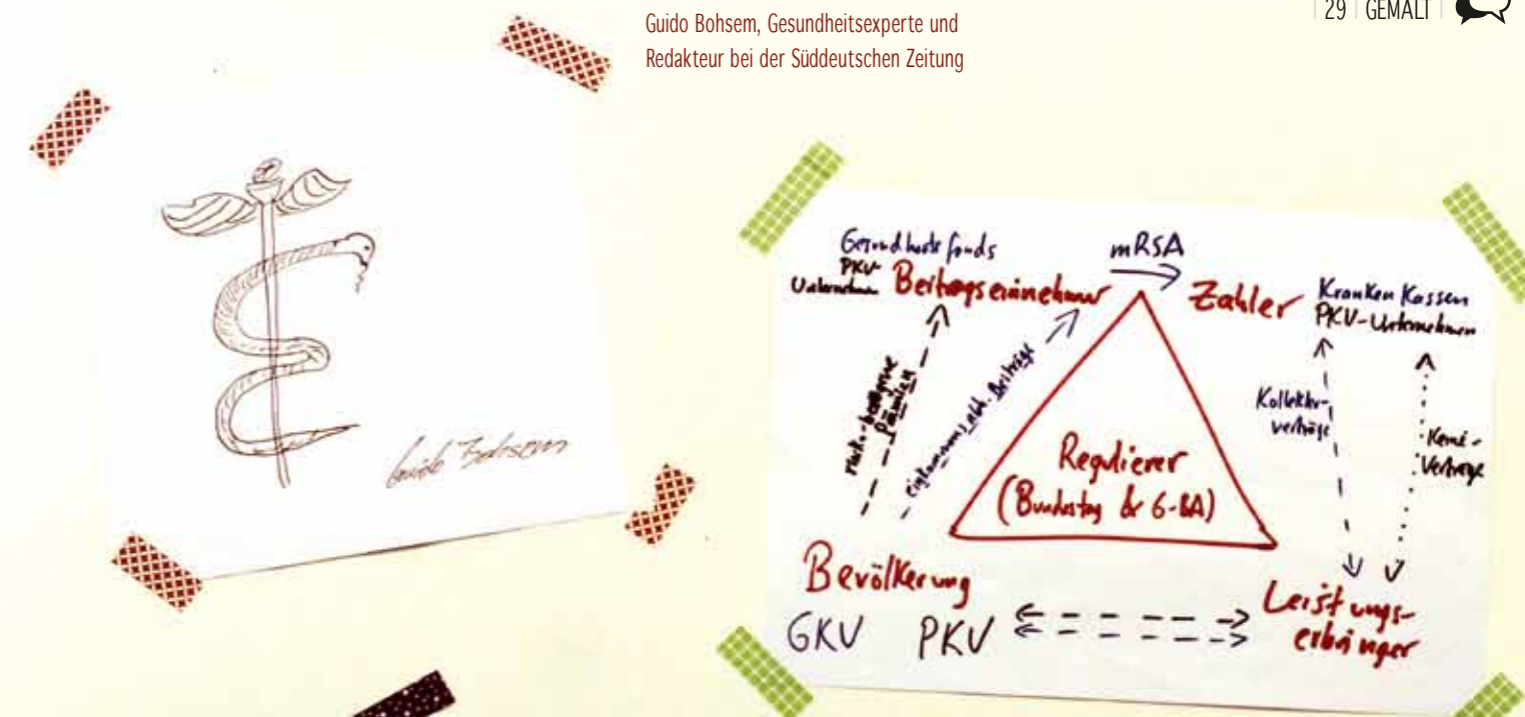 | 29 | GEMALT |
Guido Bohsem, Gesundheitsexperte und
Redakteur bei der Süddeutschen Zeitung
Guido Bohsem
Gesundheitsfonds
PKV-
Unternehmen
Beitragseinnehmer
mRSA
Zahler
Kranken Kassen
PKV-Unternehmen
risiko-bezogene
Prämien
einkommensabh. Beiträge
Kollektiv-
verträge
Keine
Verträge
Regulierer
(Bundestag & G-BA)
Bevölkerung
GKV PKV
Leistungs-
erbringer